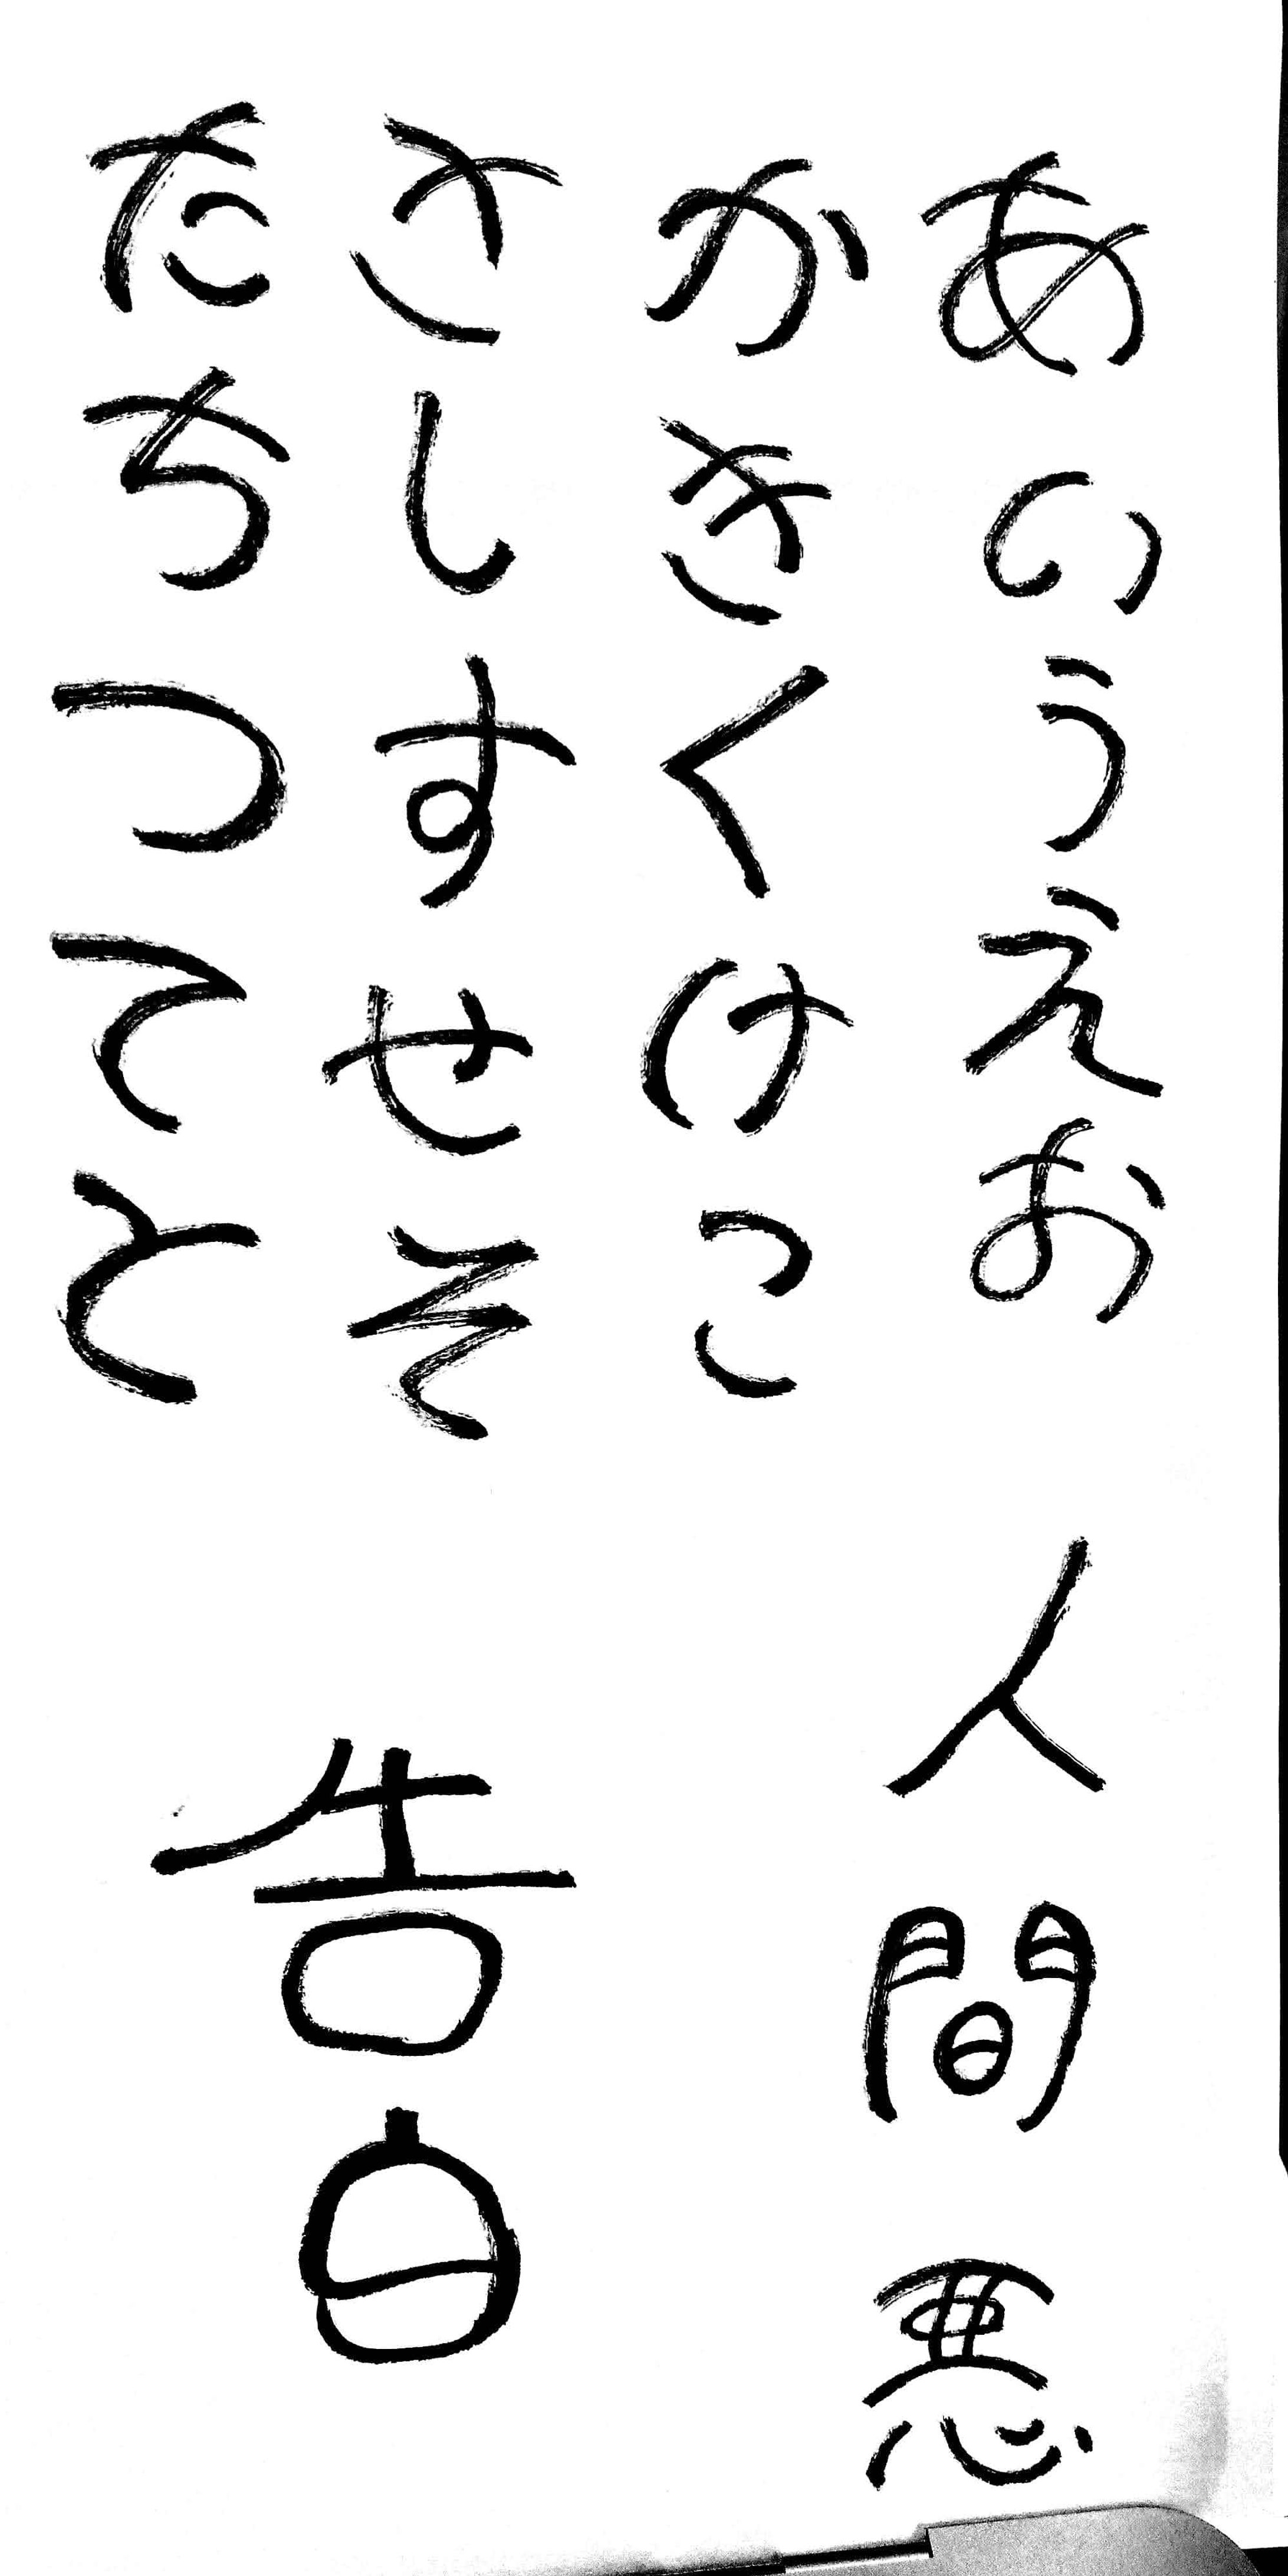 あいうえお
かきくけこ
さしすせそ
たちつてと
人間悪
告白